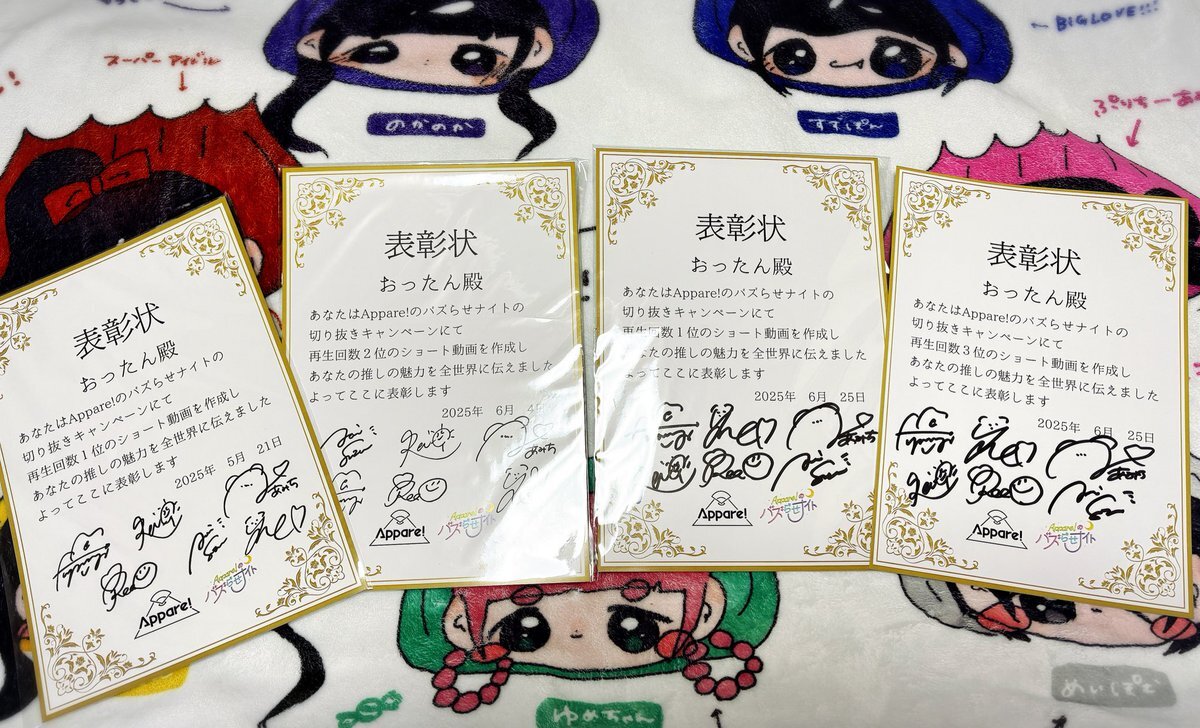 スーパーアイドル
BIGLOVE!!!
のかのか
すずぽん
表彰状
おったん殿
あなたはAppare!のバズらせナイトの
切り抜きキャンペーンにて
再生回数1位のショート動画を作成し
あなたの推しの魅力を全世界に伝えました
よってここに表彰します
2025年 5月 21日
あみち
Rea
Appare!
Appare!の
バズらせナイト
表彰状
おったん殿
あなたはAppare!のバズらせナイトの
切り抜きキャンペーンにて
再生回数2位のショート動画を作成し
あなたの推しの魅力を全世界に伝えました
よってここに表彰します
2025年 6月 4日
あみち
Rea
Appare!
Appare!の
バズらせナイト
表彰状
おったん殿
あなたはAppare!のバズらせナイトの
切り抜きキャンペーンにて
再生回数1位のショート動画を作成し
あなたの推しの魅力を全世界に伝えました
よってここに表彰します
2025年 6月 25日
あみち
Rea
Appare!
Appare!の
バズらせナイト
表彰状
おったん殿
あなたはAppare!のバズらせナイトの
切り抜きキャンペーンにて
再生回数3位のショート動画を作成し
あなたの推しの魅力を全世界に伝えました
よってここに表彰します
2025年 6月 25日
あみち
Rea
Appare!
Appare!の
バズらせナイト
ゆめちゃん
めいぽむ